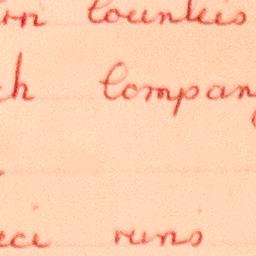 rn Counties
ch Compan
eci runs